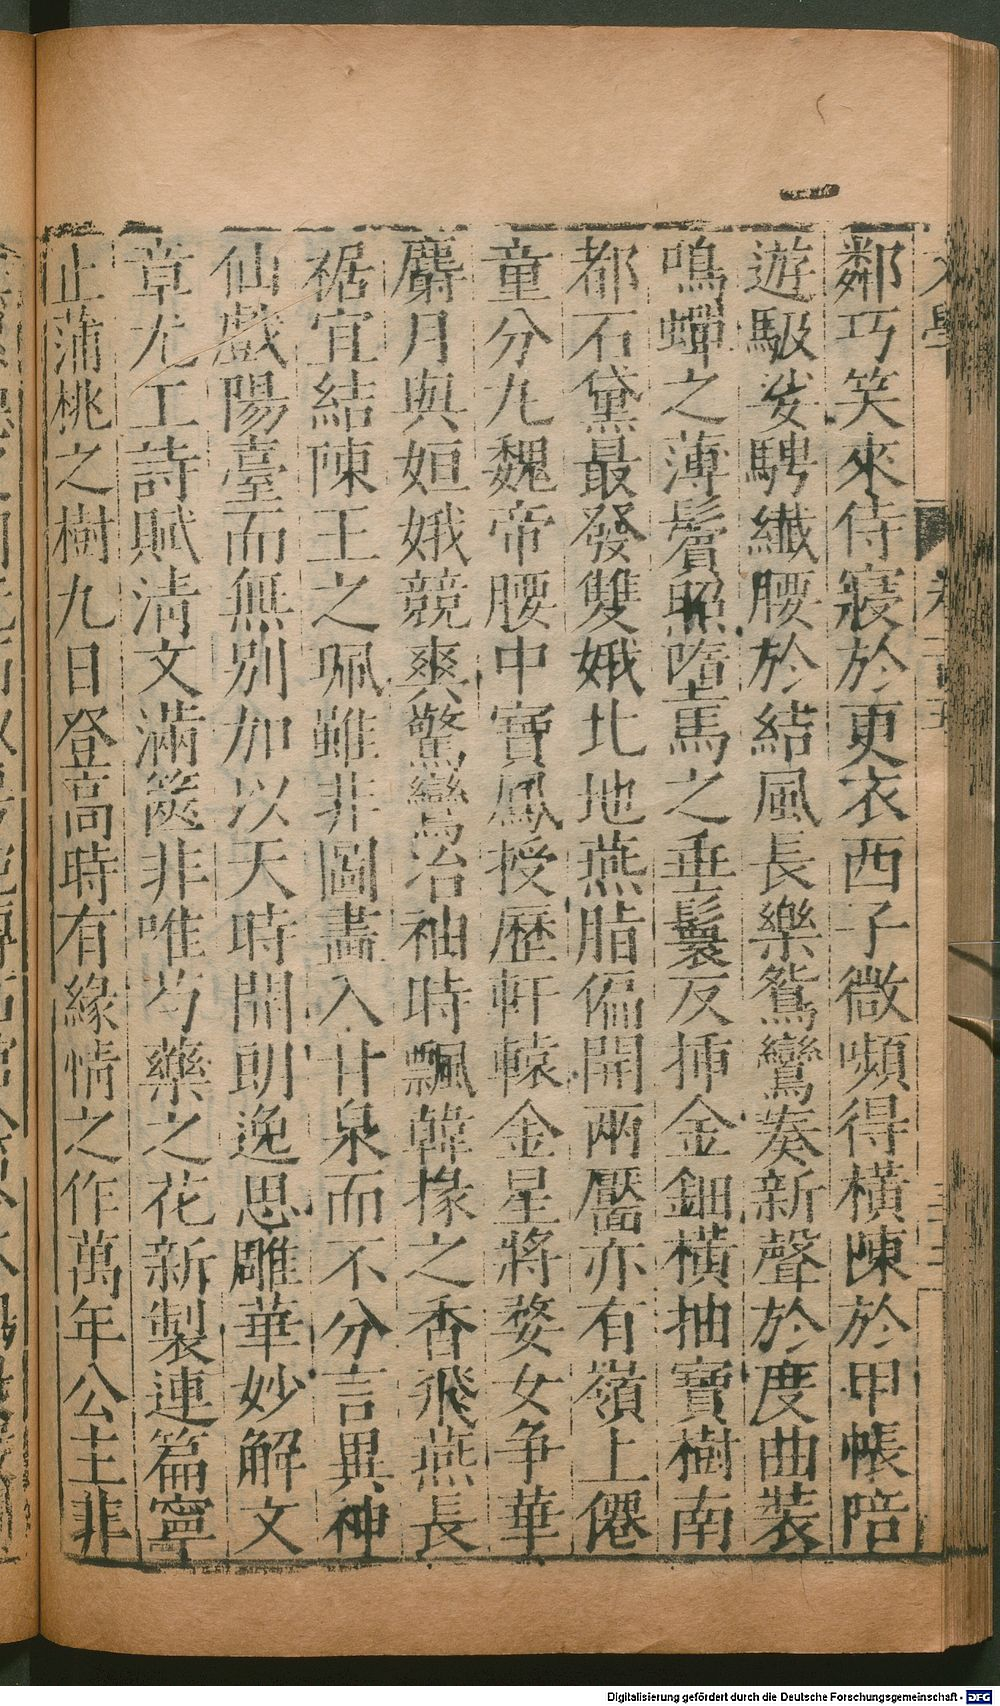 鄰巧笑來侍寢於更衣西子微嚬得橫陳於甲帳陪
遊馺娑騁纎腰於結風長樂鴛鸞奏新聲於度曲裝
鳴蟬之薄鬢照墮馬之垂鬟反揷金鈿橫抽寶樹南
都石黛最發雙娥北地燕脂偏開兩靨亦有嶺上僊
童分九魏帝腰中寶鳳授歷軒轅金星將婺女争華
麝月與姮娥競爽驚鸞冶袖時飄韓掾之香飛燕長
裾宜結陳王之珮雖非圖畵入甘泉而不分言異神
仙戲陽臺而無別加以天時開朗逸思雕華妙解文
章尤工詩賦清文滿篋非唯芍藥之花新製連篇寧
止蒲桃之樹九日登高時有緣情之作萬年公主非
Digitalisierung gefördert durch die Deutsche Forschungsgemeinschaft - DFG